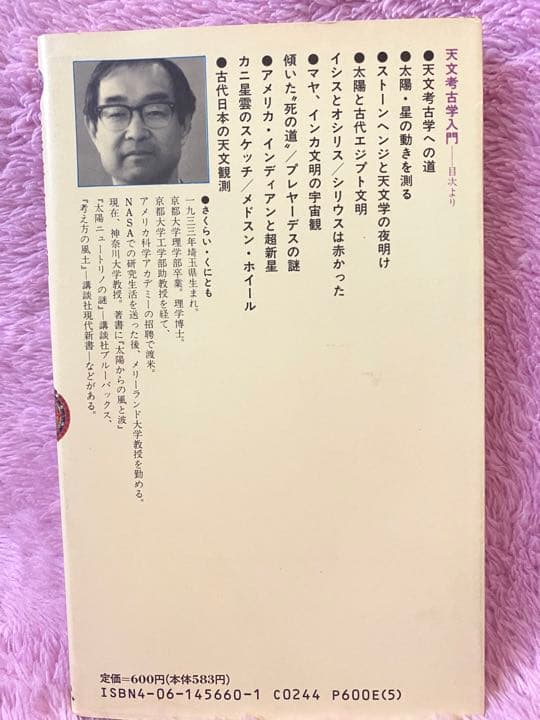 天文考古学入門——目次より
●天文考古学への道
●太陽・星の動きを測る
●ストーンヘンジと天文学の夜明け
●太陽と古代エジプト文明
イシスとオシリス/シリウスは赤かった
●マヤ、インカ文明の宇宙観
傾いた〝死の道〟/プレヤーデスの謎
●アメリカ・インディアンと超新星
カニ星雲のスケッチ/メドスン・ホイール
●古代日本の天文観測
●さくらい・くにとも
一九三三年埼玉県生まれ。
京都大学理学部卒業。理学博士。
京都大学工学部助教授を経て、
アメリカ科学アカデミーの招聘で渡米。
NASAでの研究生活を送った後、メリーランド大学教授を勤める。
現在、神奈川大学教授。著書に『太陽からの風と波』
『太陽ニュートリノの謎』—講談社ブルーバックス、
『考え方の風土』—講談社現代新書—などがある。
定価=600円(本体583円)
ISBN4-06-145660-1 C0244 P600E(5)